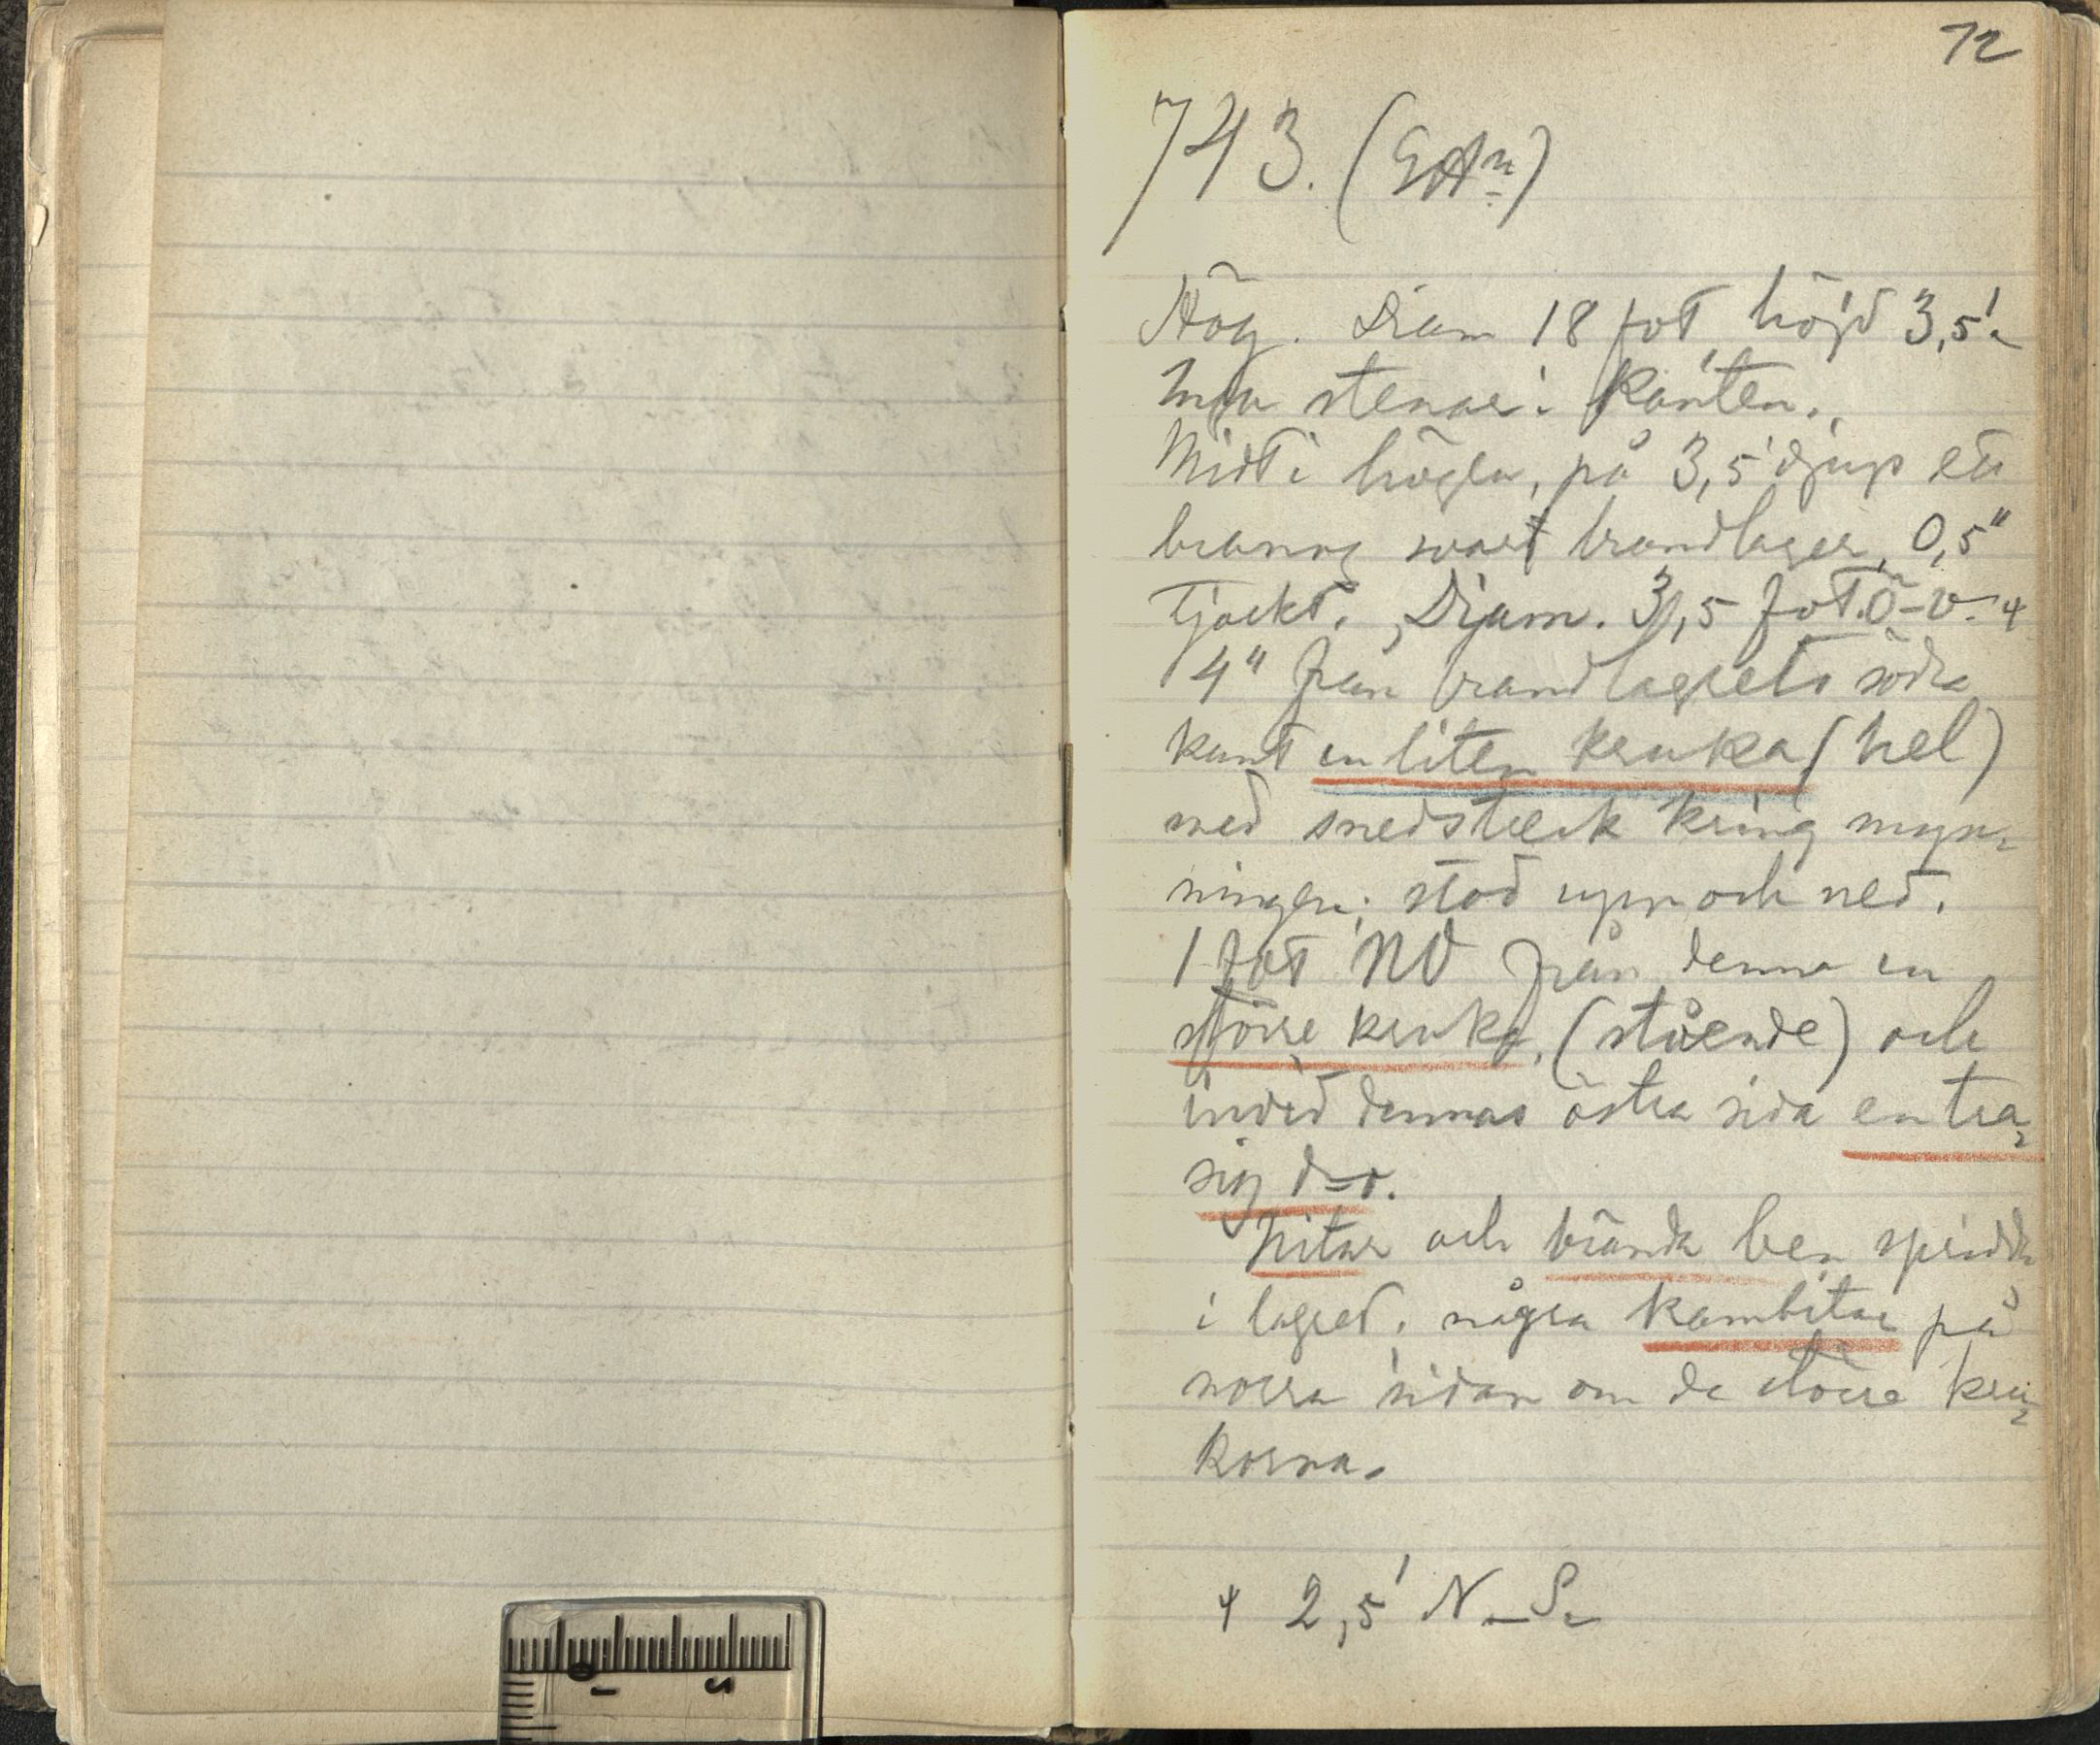 72
743. (GAn)
Hög. Diam 18 fot, höjd 3,5'.
Inga stenar i kanten.
Midt i högen, på 3,5' djup ett
svart brandlager, 0,5"
tjockt. Djam. 3,5 fot. Ö–V. +
4" från brandlagrets södra
kant en liten kruka (hel)
med snedstreck kring myn-
ningen; stod upp och ned.
1 fot NV från denna en
större kruka, (stående) och
invid dennas östra sida en tra-
sig d–o.
Nitar och brända ben spridda
i lagret, några kambitar på
norra sidan om de större kru-
korna.
+ 2,5' N–S.